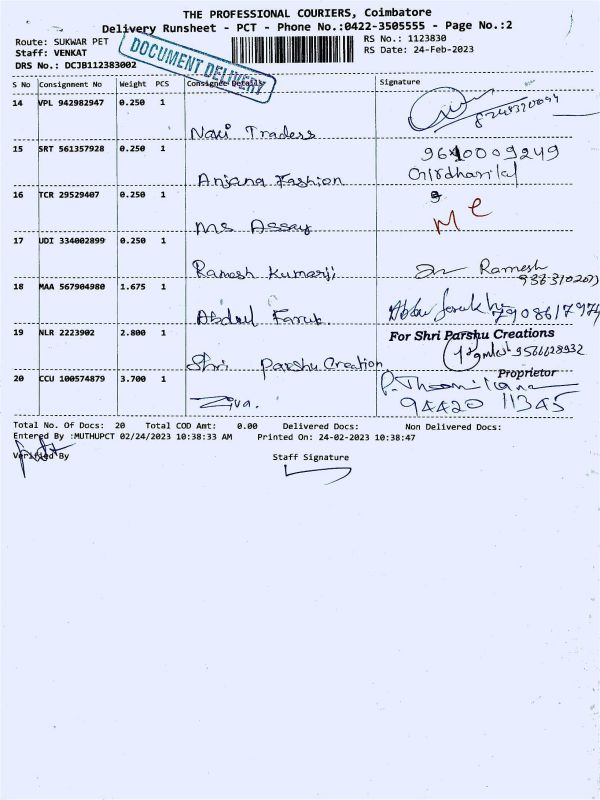 THE PROFESSIONAL COURIERS, Coimbatore
Delivery Runsheet - PCT - Phone No.:0422-3505555 - Page No.:2
Route: SUKWAR PET
RS No.: 1123830
Staff: VENKAT
RS Date: 24-Feb-2023
DRS No.: DCJB112383002
DOCUMENT DELIVERY
S No Consignment No Weight PCS Consignee Details Signature
14 VPL 942982947 0.250 1
Traders
15 SRT 561357928 0.250 1 9640009249
Anjana Fashion Girdharilal
16 TCR 29529407 0.250 1
Ms Assay Me
17 UDI 334002899 0.250 1
Ramesh Kumarji Ramesh
18 MAA 567904980 1.675 1
Abdul Faruk
19 NLR 2223902 2.800 1 For Shri Parshu Creations
9566628932
Shri Parshu Creation Proprietor
20 CCU 100574879 3.700 1
Ziva. 94420 11345
Total No. Of Docs: 20 Total COD Amt: 0.00 Delivered Docs: Non Delivered Docs:
Entered By :MUTHUPCT 02/24/2023 10:38:33 AM Printed On: 24-02-2023 10:38:47
Verified By Staff Signature